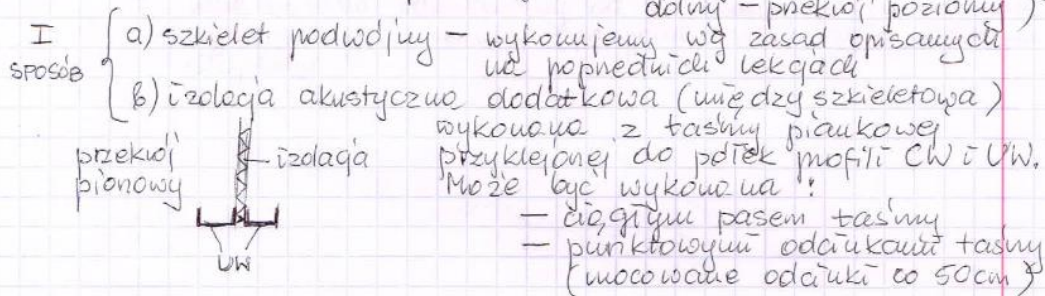 dolny – przekrój poziomy)
I sposób
a) szkielet podwójny – wykonujemy wg zasad opisanych
na poprzednich lekcjach
b) izolacja akustyczna dodatkowa (między szkieletowa)
wykonana z taśmy piankowej
przyklejonej do półek profili CW i UW.
Może być wykonana:
– ciągłym pasem taśmy
– punktowymi odcinkami taśmy
(mocowane odcinki co 50cm)
przekrój
pionowy
izolacja
UW